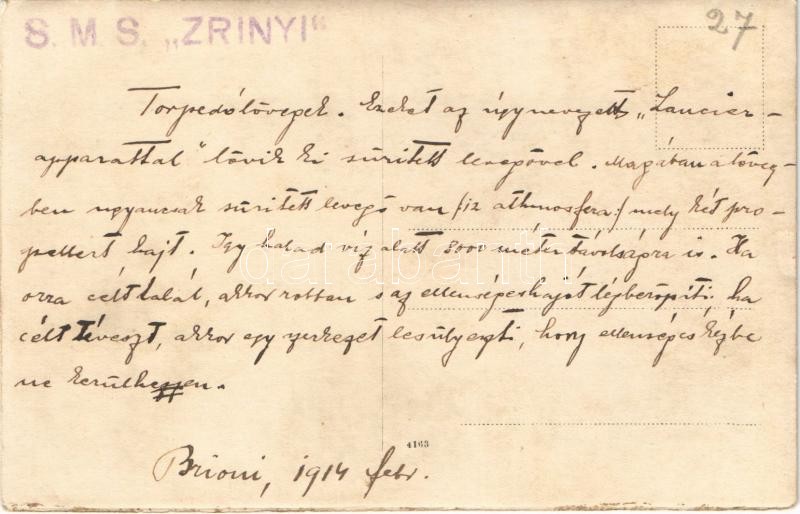 S. M. S. „ZRINYI"
27
Torpedólövegek. Ezeket az úgynevezett „Lancier-
apparattal" lövik ki sűrített levegővel. Magában a löveg-
ben ugyancsak sűrített levegő van /:iz athmosfera:/ mely két pro-
pellert hajt. Igy halad víz alatt 8000 méter távolságra is. Ha
orra célt talál, akkor robban s az ellenséges hajót légberöpíti; ha
célt téveszt, akkor egy szerkezet lesülyeszti, hogy ellenséges kézbe
ne kerülhessen.
4163
Brioni, 1914 febr.
darabanth